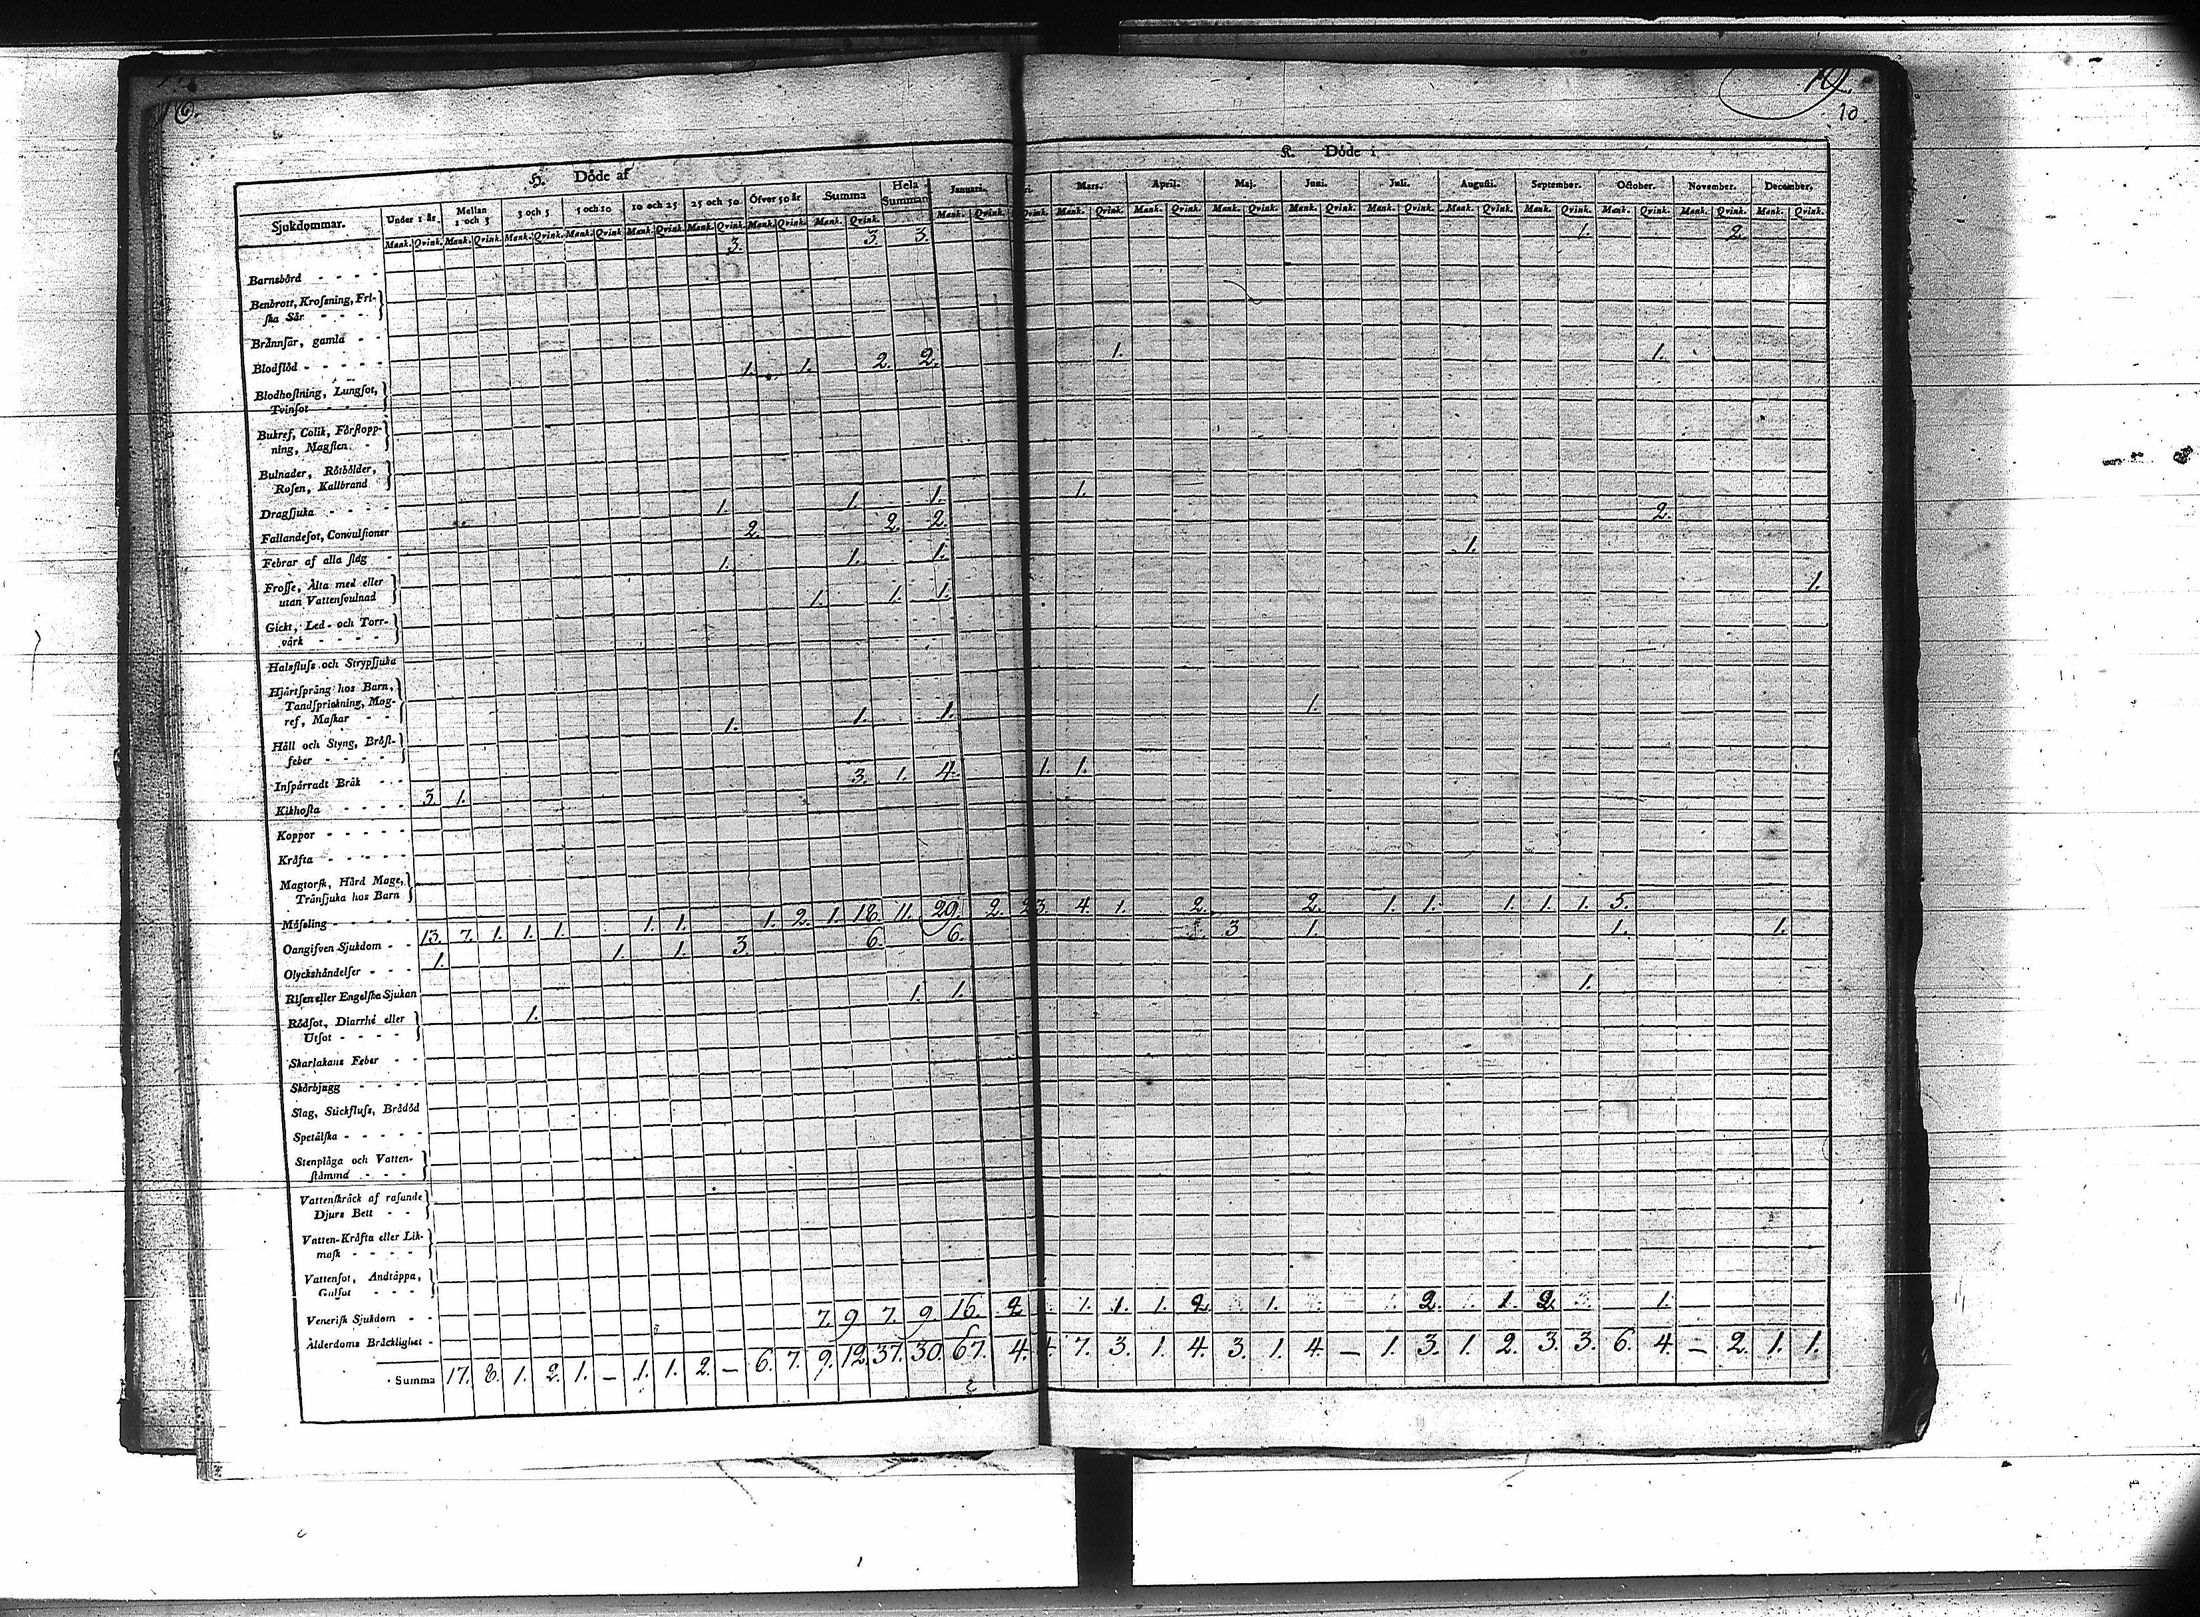 6.
10.
10
H. Döde af
K. Döde i
Sjukdommar. Under 1 år. Mellan 1 och 3 3 och 5 5 och 10 10 och 25 25 och 50. Öfver 50 år Summa Hela Summan Januari. ri. Mars. April. Maj. Juni. Juli. Augusti. September. October. November. December.
Mank. Qvink. Mank. Qvink. Mank. Qvink. Mank. Qvink. Mank. Qvink. Mank. Qvink. Mank. Qvink. Mank. Qvink. Mank. Qvink. Qvink. Mank. Qvink. Mank. Qvink. Mank. Qvink. Mank. Qvink. Mank. Qvink. Mank. Qvink. Mank. Qvink. Mank. Qvink. Mank. Qvink. Mank. Qvink.
Barnsbörd - - - - 3. 3. 3. 1. 2.
Benbrott, Kroſsning, Fri-
ſka Sår - - - -
Brännſår, gamla - -
Blodflöd - - - - - 1. 1. 2. 2. 1. 1.
Blodhoſtning, Lungſot,
Tvinſot - - - -
Bukref, Colik, Förſtopp-
ning, Magſten. -
Bulnader, Rötbölder,
Roſen, Kallbrand
Dragſjuka - - - - 1. 1. 1. 1.
Fallandeſot, Convulſioner 2. 2. 2. 2.
Febrar af alla ſlag - 1. 1. 1. 1.
Froſſe, Älta med eller
utan Vattenſvulnad 1. 1. 1. 1.
Gickt, Led- och Torr-
värk - - - -
Halsfluſs och Strypſjuka
Hjärtſprång hos Barn,
Tandſprickning, Mag-
ref, Maſkar - - 1. 1. 1. 1.
Håll och Styng, Bröſt-
feber - - - - -
Inſpärradt Bråk - -
Kikhoſta - - - - 3. 1. 3. 1. 4. 1. 1.
Koppor - - - - -
Kräfta - - - - -
Magtorſk, Hård Mage,
Trånſjuka hos Barn
Mäſsling - - - - -
Oangifven Sjukdom - - 13. 7. 1. 1. 1. 1. 1. 1. 2. 1. 18. 11. 29. 2. 3. 4. 1. 2. 2. 1. 1. 1. 1. 1. 5.
Olyckshändelſer - - - 1. 1. 1. 3. 6. 6. 3 1. 1. 1.
Riſen eller Engelſka Sjukan
Rödſot, Diarrhé eller
Utſot - - - - 1. 1. 1. 1.
Skarlakans Feber - -
Skörbjugg - - - -
Slag, Stickfluſs, Brådöd
Spetälſka - - - - -
Stenplåga och Vatten-
ſtämma - - -
Vattenſkräck af raſande
Djurs Bett - -
Vatten-Kräfta eller Lik-
maſk - - - -
Vattenſot, Andtäppa,
Gulſot - - -
Veneriſk Sjukdom - -
Ålderdoms Bräcklighet - 7. 9. 7. 9. 16. 2. 1. 1. 1. 2. 1. 2. 1. 2. 1.
Summa 17. 8. 1. 2. 1. — 1. 1. 2. — 6. 7. 9. 12. 37. 30. 67. 4. 4. 7. 3. 1. 4. 3. 1. 4. — 1. 3. 1. 2. 3. 3. 6. 4. — 2. 1. 1.